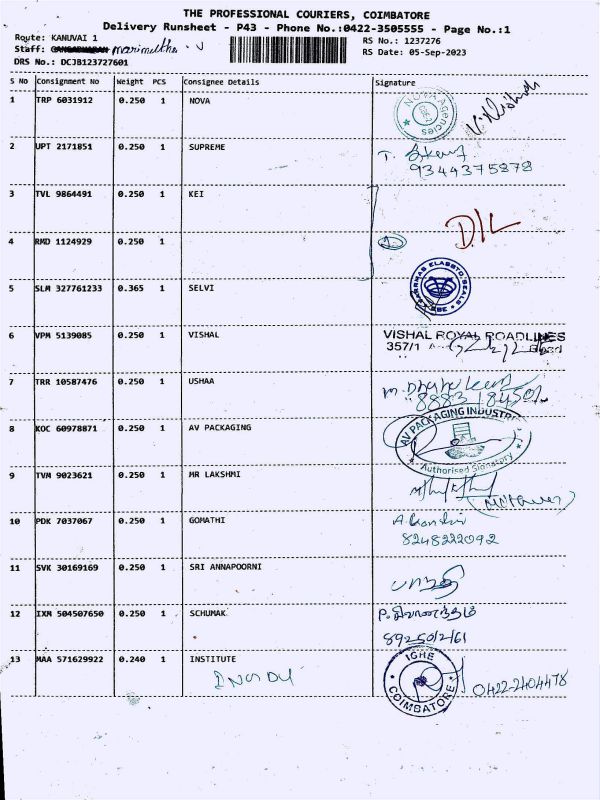 THE PROFESSIONAL COURIERS, COIMBATORE
Delivery Runsheet - P43 - Phone No.:0422-3505555 - Page No.:1
Route: KANUVAI 1
RS No.: 1237276
Staff: Marimuthu . V
RS Date: 05-Sep-2023
DRS No.: DCJB123727601
S No Consignment No Weight PCS Consignee Details Signature
1 TRP 6031912 0.250 1 NOVA NOVA Agencies CBE-2
2 UPT 2171851 0.250 1 SUPREME T.
9344375878
3 TVL 9864491 0.250 1 KEI D/L
4 RMD 1124929 0.250 1
5 SLM 327761233 0.365 1 SELVI
6 VPM 5139085 0.250 1 VISHAL VISHAL ROYAL ROADLINES
357/1
7 TRR 10587476 0.250 1 USHAA
8 KOC 60978871 0.250 1 AV PACKAGING AV PACKAGING INDUSTR
Authorised Signatory
9 TVM 9023621 0.250 1 MR LAKSHMI
10 PDK 7037067 0.250 1 GOMATHI
8248222092
11 SVK 30169169 0.250 1 SRI ANNAPOORNI
12 IXM 504507650 0.250 1 SCHUMAK
13 MAA 571629922 0.240 1 INSTITUTE IGHE COIMBATORE 0422-2404478